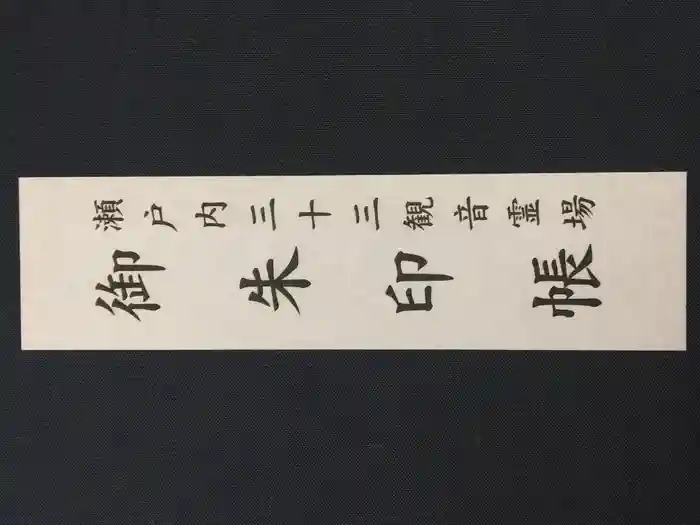 瀬戸内三十三観音霊場
御朱印帳